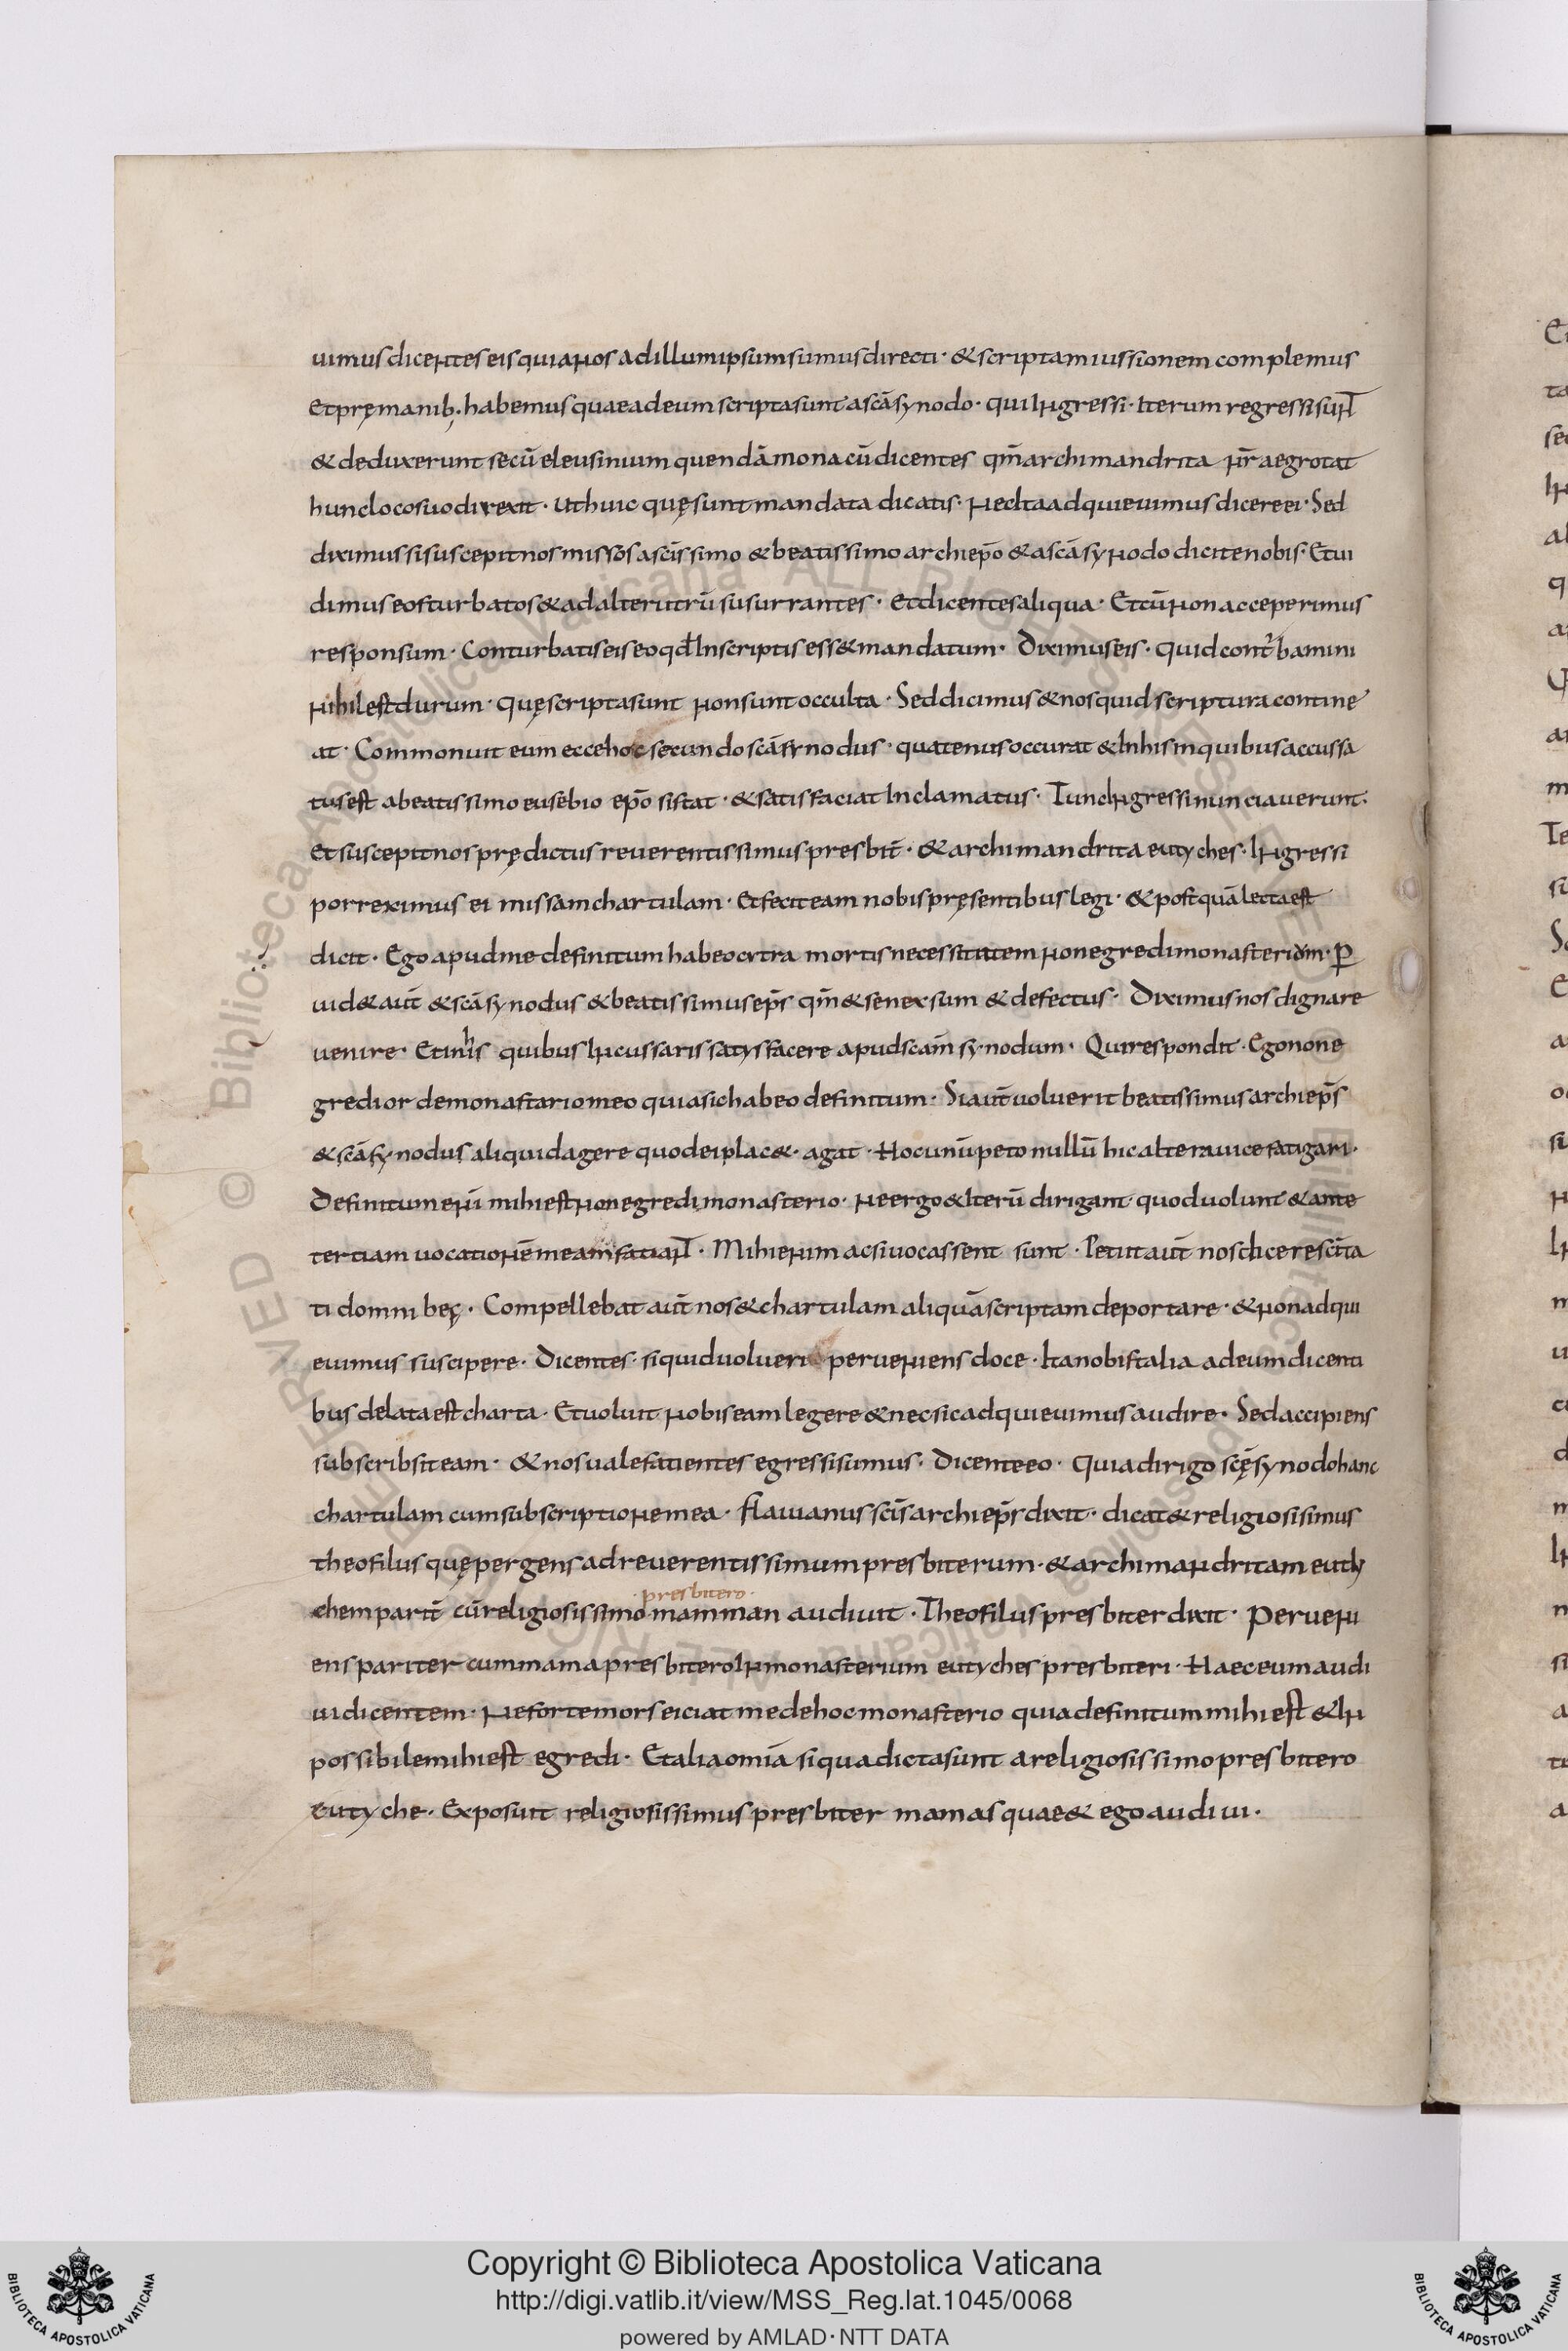 uimus dicentes eis quia nos ad illum ipsum sumus directi · & scriptam iussionem complemus
Et prę manib; habemus quae ad eum scripta sunt a scā synodo · qui Ingressi · Iterum regressi sunt
& deduxerunt secū eleusinium quendā monacū dicentes qm̄ archimandrita nr̄ aegrotat
hunc loco suo direxit · ut huic quę sunt mandata dicatis · Nec Ita adquieuimus dicere ei · Sed
diximus si suscepit nos missos a scīssimo & beatissimo archiepō & a scā synodo dicite nobis · Et ui
dimus eos turbatos & ad alterutrū susurrantes · Et dicentes aliqua · Et cū non acceperimus
responsum · Conturbatis eis eo qđ Inscriptis ess& mandatum · Diximus eis · quid contr̄bamini
Nihil est durum · quę scripta sunt non sunt occulta · Sed dicimus & nos quid scriptura contine
at · Commonuit eum ecce hoc secundo scā synodus · quatenus occurat & In his in quibus accussa
tus est a beatissimo eusebio epō sistat · & satisfaciat Inclamatus · Tunc Ingressi nunciauerunt ·
Et suscepit nos prędictus reuerentissimus presbit̄ · & archimandrita eutyches · Ingressi
porreximus ei missam chartulam · Et fecit eam nobis pręsentibus legi · & postquā lecta est
dicit · Ego apud me definitum habeo extra mortis necessitatem non egredi monasterium · P
uid& aut̄ & scā synodus & beatissimus ep̄s qm̄ & senex sum & defectus · Diximus nos dignare
uenire · Et in his quibus Incussaris satysfacere apud scam̄ synodum · Qui respondit · Ego non e
gredior de monastario meo quia sic habeo definitum · Si aut̄ uoluerit beatissimus archiep̄s
& scā synodus aliquid agere quod ei plac& · agat · Hoc unū peto nullū hic altera uice fatigari ·
Definitum enī mihi est non egredi monasterio · Ne ergo & Iterū dirigant quod uolunt & ante
tertiam uocationē meam fatiant · Mihi enim acsi uocassent sunt · Petiit aut̄ nos dicere scīta
ti domni beę · Compellebat aut̄ nos & chartulam aliquā scriptam deportare · & non adqui
euimus suscipere · Dicentes · si quid uolueri perueniens doce · Ita nobis talia ad eum dicenti
bus delata est charta · Et uoluit nobis eam legere & nec sic adquieuimus audire · Sed accipiens
subscribsit eam · & nos uale fatientes egressi sumus · Dicente eo · Quia dirigo scę̄ synodo hanc
chartulam cum subscriptione mea · Flauianus scīs archiep̄s dixit · dicat & religiosisimus
theofilus quę pergens ad reuerentissimum presbiterum · & archimandritam euty
·presbitero·
chem parit̄ cū religiosissimo mamman audiuit · Theofilus presbiter dixit · Perueni
ens pariter cum mama presbitero In monasterium eutyches presbiteri · Haec eum audi
ui dicentem · Ne forte mors eiciat me de hoc monasterio quia definitum mihi est & In
possibile mihi est egredi · Et alia omīa si qua dicta sunt a religiosissimo presbitero
Eutyche · Exposuit religiosissimus presbiter mamas quae & ego audiui ·
Copyright © Biblioteca Apostolica Vaticana
http://digi.vatlib.it/view/MSS_Reg.lat.1045/0068
powered by AMLAD·NTT DATA